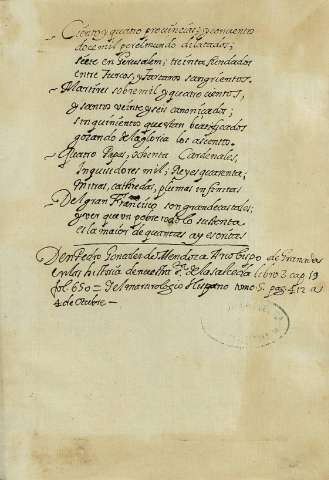 Ciento y quatro provincias; y conuento
doce mil por el mundo dilatados;
siete en Jerusalem; treinta fundados
entre Turcos, y tartaros sangrientos.
Martires sobre mil y quatrocientos,
y santos veinte y seis canoniçados;
sin quinientos que estan beatificados
gozando de la gloria los asientos.
Quatro Papas, ochenta Cardenales,
Inquisidores mil; Reyes quarenta;
mitras, cathedras, plumas infinitas
Del gran Francisco son grandeças tales;
y ver que un pobre todo lo sustenta
es la maior de quantas ay escritas
Don Pedro Gonzales de Mendoza Arçobispo de Granada
en la historia de nuestra Sª. de la salceda libro 2 cap. 19
fol. 650 = del martirologio Hispano tomo 5. pag. 412 a
4 de Octubre —